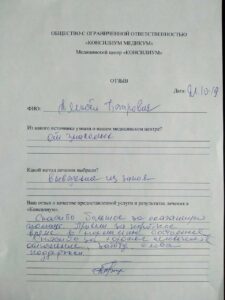 ОБЩЕСТВО С ОГРАНИЧЕННОЙ ОТВЕТСТВЕННОСТЬЮ
«КОНСИЛИУМ МЕДИКУМ»
Медицинский центр «КОНСИЛИУМ»
ОТЗЫВ
Дата:
ФИО:
Из какого источника узнали о нашем медицинском центре?
от знакомых
Какой метод лечения выбрали?
выведение из запоя
Ваш отзыв о качестве предоставленной услуги и результатах лечения в
«Консилиум».
Спасибо большое за оказанную
помощь. за короткое
время
Спасибо за человеческое
отношение, слова
поддержки.